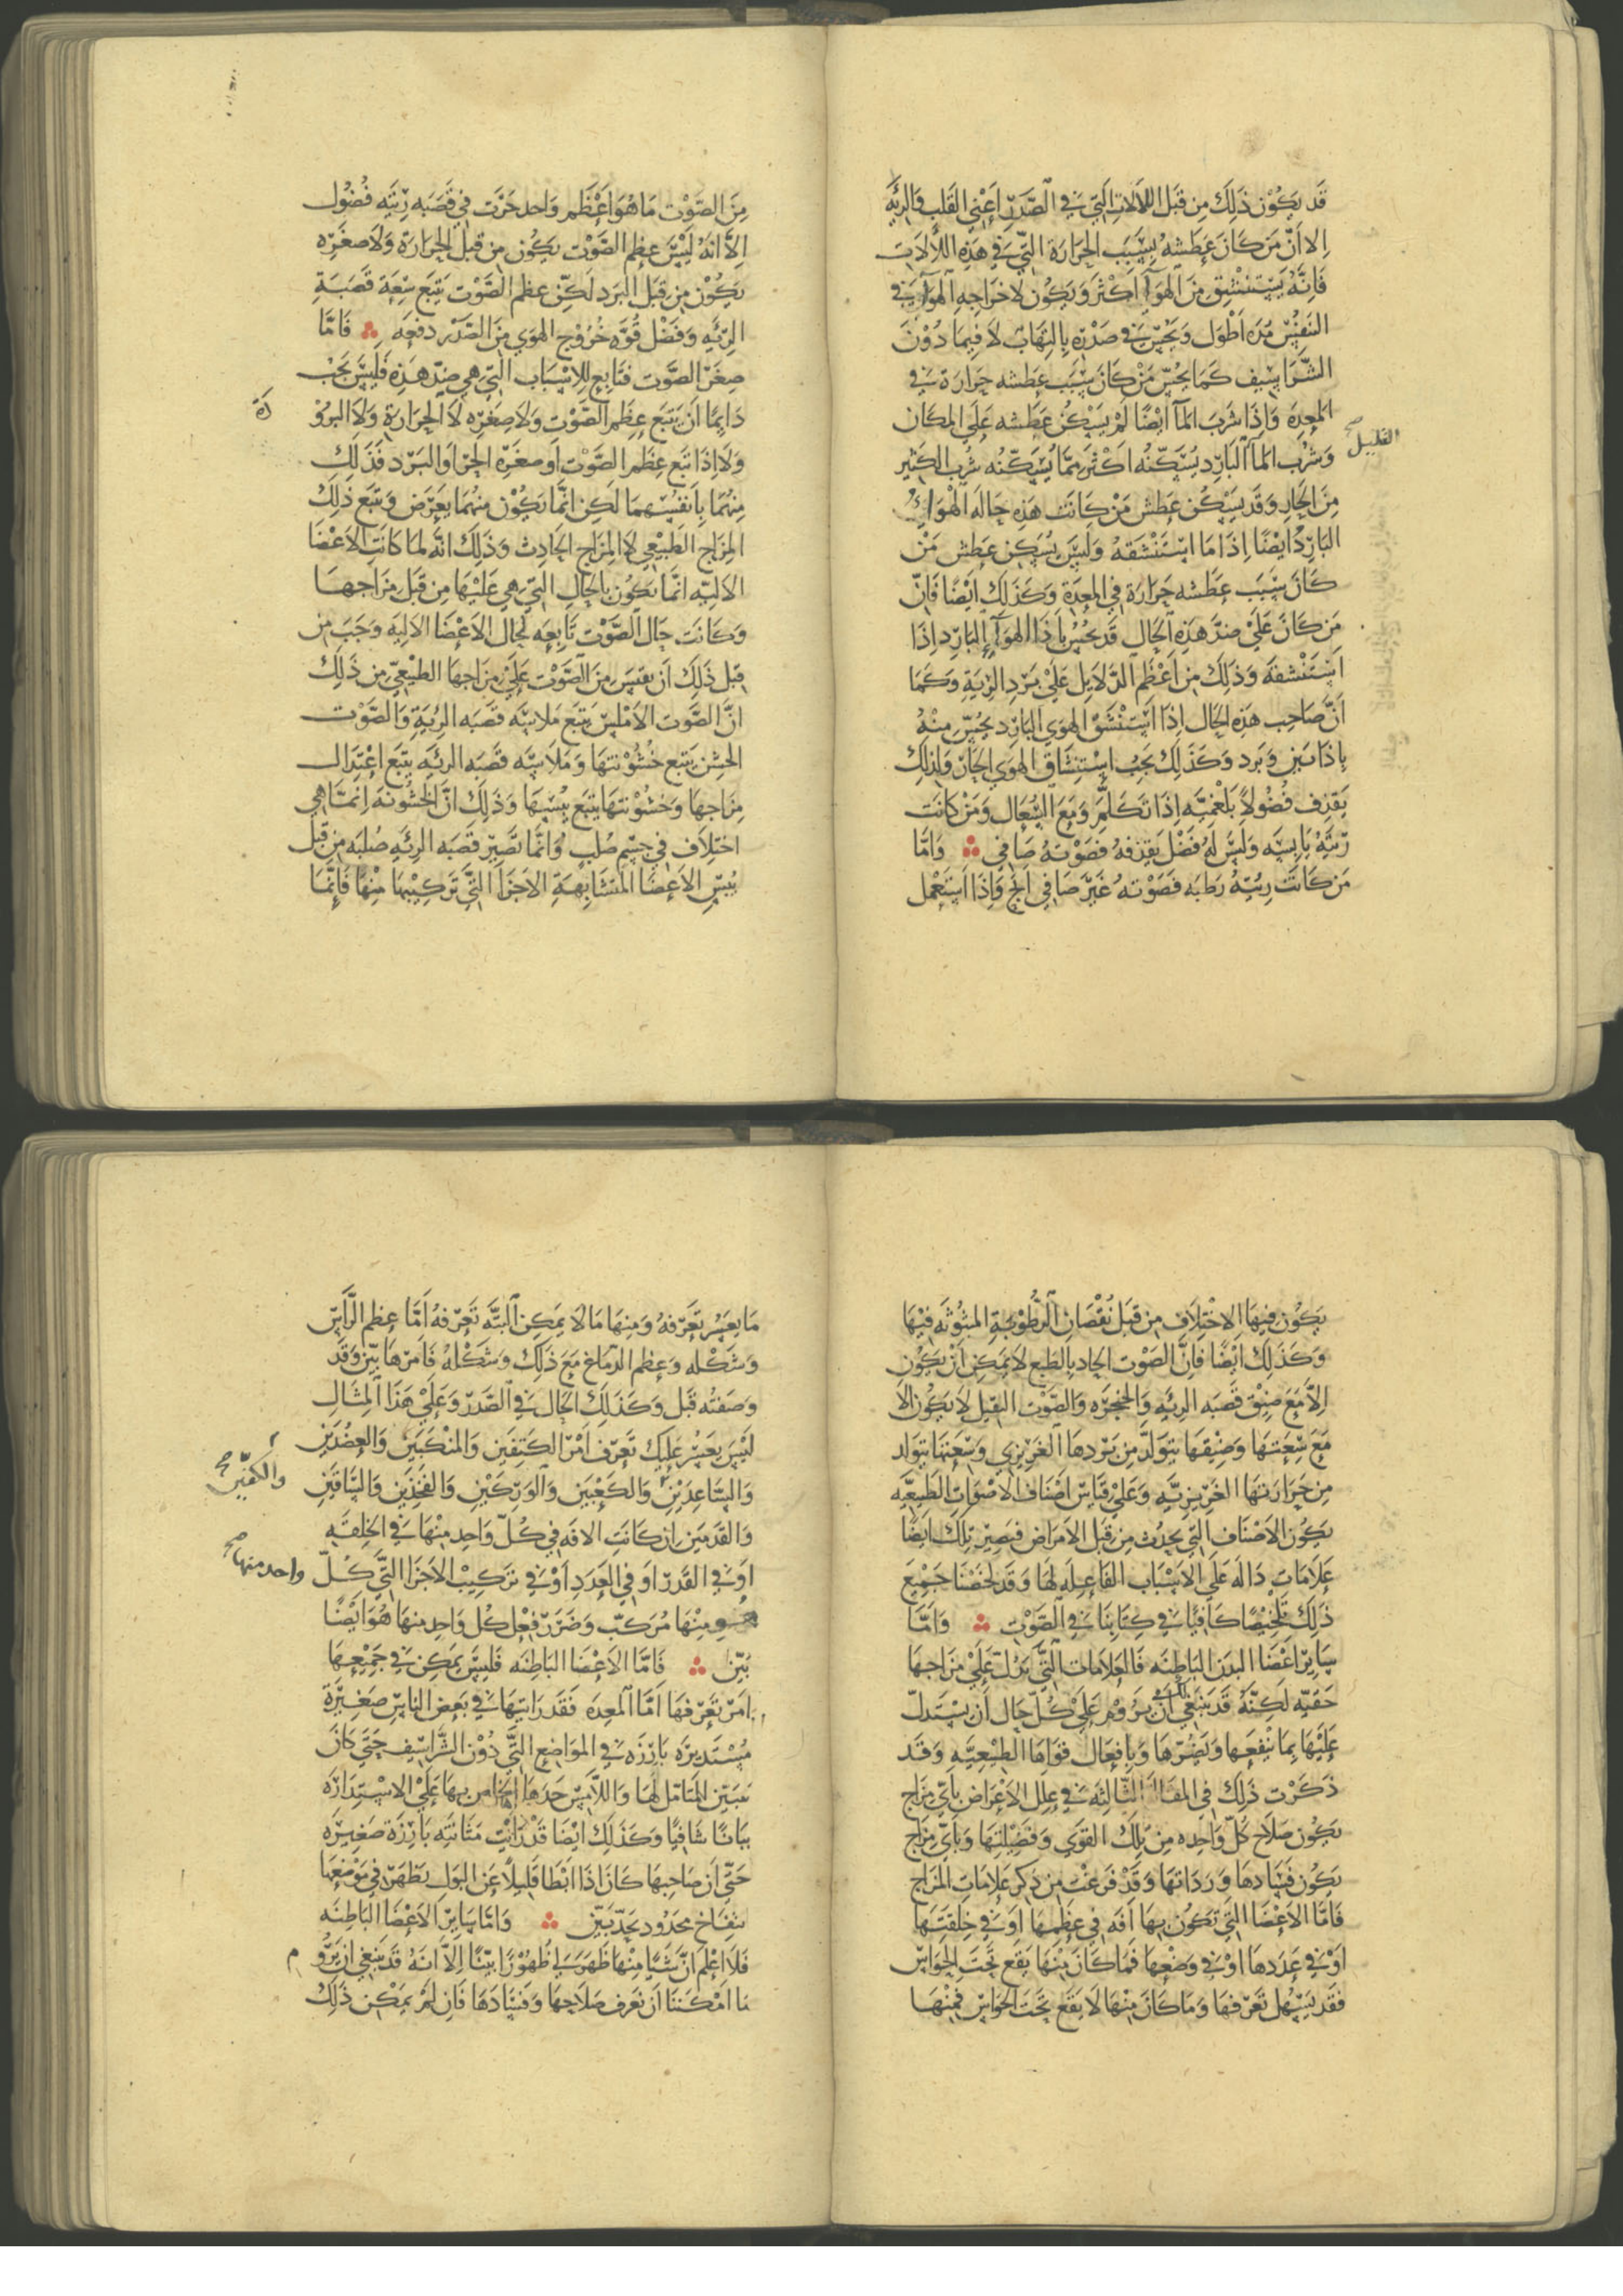 قَد يَكُوْن ذَلِكَ مِن قِبَل اللاَلاتِ الَّتِيْ فِي الصَّدَرِ اعَنِي القَلب وَالرِئَةِ
اِلا اَنّ مَن كَانَ عَطَشهُ بِسَبَب الحَرَارَة الَّتِيْ فِي هَذِهِ اللأَلَات
فَاِنَّهُ يَسْتَنْشِق مِنَ الهَوَآ اَكْثَر وَيَكُون لاخرَاجِهِ الهَوَآ فِي
النَفِسْ مُدَه اَطْوَل وَيَحُسّ فِي صَدْرِهِ بِالتِهَاب لاَ فِيمَا دُوْنَ
الشَّرَاسِيف كَمَا يَحُسّ مَنْ كَانَ سَبَب عَطَشه حَرَارَة فِي
المعِدِه وَاِذَا شَرَبَ المَآ اَيْضًا لَمْ يَسْكُن عَطَشه عَلَي المكَان
القليل صح
وَشُرْب المَآ البَارِد يُسَكّنُه اَكْثَر مِمَّا يُسَكّنُه شُرْب الكَثِير
مِنَ الحَارِ وَقَد يَسْكُن عَطَش مَنْ كَانَت هَذِهِ حَالَه الهَوَاء
البَارِدُ ايضًا اِذَا مَا اسْتَنْشَقهُ وَلَيسَ يُسَكِن عَطش مَنْ
كَانَ سَبَب عَطَشه حَرَارَة فِي المعِدَة وَكَذَلِكَ اَيْضًا فَاِنّ
مَن كَانَ عَلَيْ ضِدّ هَذِهِ الحَال قَد يحُسّ بِاَذَا الهوَآ البَارِد اِذَا
اسْتَنْشقَهُ وَذَلِكَ مِن اَعْظَم الدَّلايِل عَلَيْ بَرْدِ الرِيَةِ وَكَمَا
اَنّ صَاحِب هَذِهِ الحَال اِذَا اسْتَنْشَق الهوَي البَارِد يحُسّ مِنْهُ
بِاذَا بَيّن وَبَرد وَكَذَلِكَ يُحِبُ اسْتِنْشَاق الهوَي الحَارّ وَلِذَلِكَ
يَقذِف فُضُولاً بَلْغَمِيَّه اِذَا تَكَلَّمَ وَمَعَ السُّعَال وَمَنْ كَانَت
رِئَتُهُ يَابِسَه وَلَيسَ لَهُ فَضْل يَقذِفهُ فَصَوْتهُ صَافِي وَامَّا
مَن كَانَت رِئتهُ رَطبَه فَصَوْتهُ غَيْر صَافِي ابَحّ وَاِذَا اسْتَعْمل
مِنَ الصَّوْت مَا هُوَ اَعْظَم وَاحد جَرَت فِي قَصَبَه رِئَتِه فُضُول
الاَّ اَنَهُ لَيْسَ عِظم الصَّوْت يَكُون مِن قِبَل الحَرَارَة وَلاَ صغَرِه
يَكُوْن مِن قِبَل البَرد لَكِنّ عظم الصَّوْت يَتبَع سَعَة قَصَبَةِ
الرِئَهِ وَفَضْل قُوَّه خُرُوْج الهوَي مِنَ الصَّدْر دفعَه فَامَّا
صِغَر الصَّوت فتَابِع لِلاِسْبَاب الَّتِيْ هِي ضِدّ هَذِهِ فَلَيْسَ يَجَبُ
دَايِمًا اَنْ يَتَبع عِظَم الصَّوْت وَلاَ صِغَرِه لَا الحَرَارَة وَلاَ البرُوْ
دَةَ
وَلاَ اِذَا تَبع عِظَم الصَّوْت اَو صِغَرَه الحَرّ اَو البَرد فَذَلِكَ
مِنْهُمَا بِاَنفُسِهِمَا لَكِن اِنَّمَا يَكُوْن مِنهُمَا بِعَرَض وَيَتبَع ذَلِكَ
المِزَاج الطَبِيْعِي لاَ المِزَاج الحَادِث وَذَلِكَ انَّهُ لمَا كَانَتِ الاَعْضَا
الاليَّه اِنَّمَا تَكُوْن بِالحَالِ الَّتِيْ هِي عَلَيْهَا مِن قَبَل مِزَاجهَا
وَكَانَت حَال الصَّوْت تَابِعَه لَحَالِ الاَعْضَا الالِيَه وَجَبَ مِن
قِبَل ذَلِكَ اَن نَقِيسَ مِنَ الصَّوْت عَلَيْ مِزَاجهَا الطَّبِيْعِيّ مِن ذَلِكَ
انَّ الصَّوت الاَمْلَس يَتبَع مَلاسَه قَصَبَه الرِئَةِ وَالصَّوْت
الخشِن يَتبَع خُشُوْنتهَا وَمَلاسَه قَصَبَه الرِئَهِ يَتبَع اعْتِدَال
مِزَاجهَا وَخشُوْنتهَا يَتبَع يُبسَهَا وَذَلِكَ اَنَّ الخُشُونَه اِنمَّا هِي
اختِلاَف فِي جِسْم صُلب وَانَّمَا تَصِيْر قَصَبَه الرِئَهِ صُلبَه مِن قِبَل
يُبْس الاَعْضَا المتَشَابِهَةِ الاَجْزَآ الَّتِيْ تَركِيْبهَا مِنْهَا فَاِنَّمَا
يَكُوْن فِيهَا الاخْتِلاَف مِن قِبَل نُقْصَان الرُّطُوْبَةِ المبْثُوْثَه فِيْهَا
وَكَذَلِكَ اَيْضًا فَاِنَّ الصَّوْت الحَاد بِالطَبع لاَ يمَكِن اَنْ يَكُوْن
اِلاَّ مَعَ ضِيْق قَصَبه الرِئَهِ وَالحنجَرَه وَالصَّوْت الثقِيل لاَ يَكُوْن الاَ
مَعَ سَعَتهَا وَضِيْقهَا يتَوَلّد مِن بَرْدهَا الغَرِيْزِي وَسَعَتهَا يَتوَلد
مِن حَرَارَتهَا الغَرِيْزِيَّهِ وَعَلَيْ قيَاس اَصْنَاف الاَصْوَاتِ الطَبِيْعيَّه
يَكُوْن الاَصْنَاف الَّتِيْ يحدُث مِن قِبَل الاَمرَاض فَيصِيْر تِلكَ ايَضًا
عَلاَمَات دَالَه عَلَي الاَسْبَاب الفَاعِلَه لهَا وَقَد لخصْنَا جَمِيْع
ذَلِكَ تَلخِيْصًا كَافِيًا فِي كِتَابِنَا فِي الصَّوْت وَامَّا
سَايِر اَعْضَا البدَن البَاطِنَه فَالعَلاَمَات الَّتِيْ تَدُل عَلَيْ مِزَاجهَا
خَفيَّه لَكِنَّهُ قَد يَنْبَغِي اَنْ يَرُوْم عَلَيْ كُلّ حَال اَن يَسْتَدلّ
عَلَيْهَا بِمَا يَنْفعَهَا وَيَضُرّهَا وَبِافعَال قوَاهَا الطَبِيْعِيَّهِ وَقَد
ذَكَرْت ذَلِكَ فِي المقَالَة الثَّالِثَه فِي عِلل الاَعْرَاض بِاَيّ مِزَاج
يَكُوْن صَلاَح كُلّ وَاحِده مِن تِلكَ القوَي وَفَضِيْلَتهَا وَبَايّ مِزَاج
يَكُوْن فَسَادهَا وَرَدَاتهَا وَقَدْ فَرَغْت مِن ذِكر عَلاَمَات المزَاج
فَامَّا الاَعْضَا الَّتِيْ تَكُوْن بِهَا اَفَه فِي عِظَمهَا اَوْ فِي خِلقَتِهَا
اَوْ فِي عَدَدهَا اَوْ فِي وَضْعِهَا فَمَا كَانَ مِنْهَا يَقَع تَحتَ الحوَاسّ
فقَد يَسْهُل تَعَرّفهَا وَمَا كَانَ مِنْهَا لَا يَقَع تَحَتَ الحوَاسّ فمِنْهَا
مَا يَعْسُر تعَرّفهُ وَمِنهَا مَا لاَ يمَكِن البتَّه تَعَرّفهُ اَمَّا عِظم الرَّاسّ
وَشَكْله وَعِظم الدّمَاغ مَعَ ذَلِكَ وَشَكْلهُ فَامرهَا بيّن وَقَد
وَصَفتُه قَبَل وَكَذَلِكَ الحَال فِي الصَّدَر وَعَلَيْ هَذَا المِثَال
لَيْسَ يَعسُر عَلَيكَ تَعَرّف اَمْر الكَتِفَين وَالمنْكبَين وَالعَضُدَيْن
والكفين صح
وَالسَّاعِدَيْنِ وَالكَعْبَيْن وَالوَرِكَيْن وَالفَخِذَين وَالسَّاقَيْن
وَالقَدَمَين اِن كَانَتِ الافَه فِي كُلّ وَاحِد مِنْهَا فِي الخِلقَه
اَوْ فِي القَدْر اَو فِي العَدَدِ اَوْ فِي تَركِيْب الاَجْزَا الَّتِيْ كُلّ
واحد منها صح
مِنْهَا مُرَكبّ وَضَرَر فِعْل كُل وَاحِد مِنهَا هُوَ ايَضًا
بَيّن فَامَّا الاَعْضَا البَاطِنَه فَلَيْسَ يمَكِن فِي جَمِيْعِهَا
اَمرَ تَعَرّفهَا اَمَّا المعِدَه فَقَد رَايتهَا فِي بَعض الناسّ صَغِيْرَة
مُسْتَدِيرَه بَارِزَه فِي الموَاضِع الَّتِيْ دُوْن الشَّرَاسِيْف حَتَّي كَانَ
يَتَبَيّن المتَامّل لهَا وَاللاَّمِسّ حَدّهَا الخاص بِهَا عَلَيْ الاسْتِدَارَه
بيَانًا شَافِيًا وَكَذَلِكَ ايْضَا قَدْ رَايْت مَثَانَتِه بَارِزَة صَغِيْرَه
حَتَّي اَن صَاحِبهَا كَانَ اذَا اَبْطَا قَلِيلاً عَن البَول يَظهَر فِي مَوْضِعهَا
نتفَاخ محَدُود بَحَدّ بَيّن وَامَّا سَايِر الاَعْضَا البَاطِنَه
فَلاَ اَعْلَم اَنّ شَيًا مِنْهَا ظَهَرَ لِي ظُهُوْرًا بَيّنًا اِلاَّ اَنَهُ قَد يَنبَغِي اَن نَرُو
م
مَا اَمْكَننَا اَن نَعَرف صَلاَحِهَا وَفَسَادَهَا فَاِن لَمْ يمَكِن ذَلِكَ